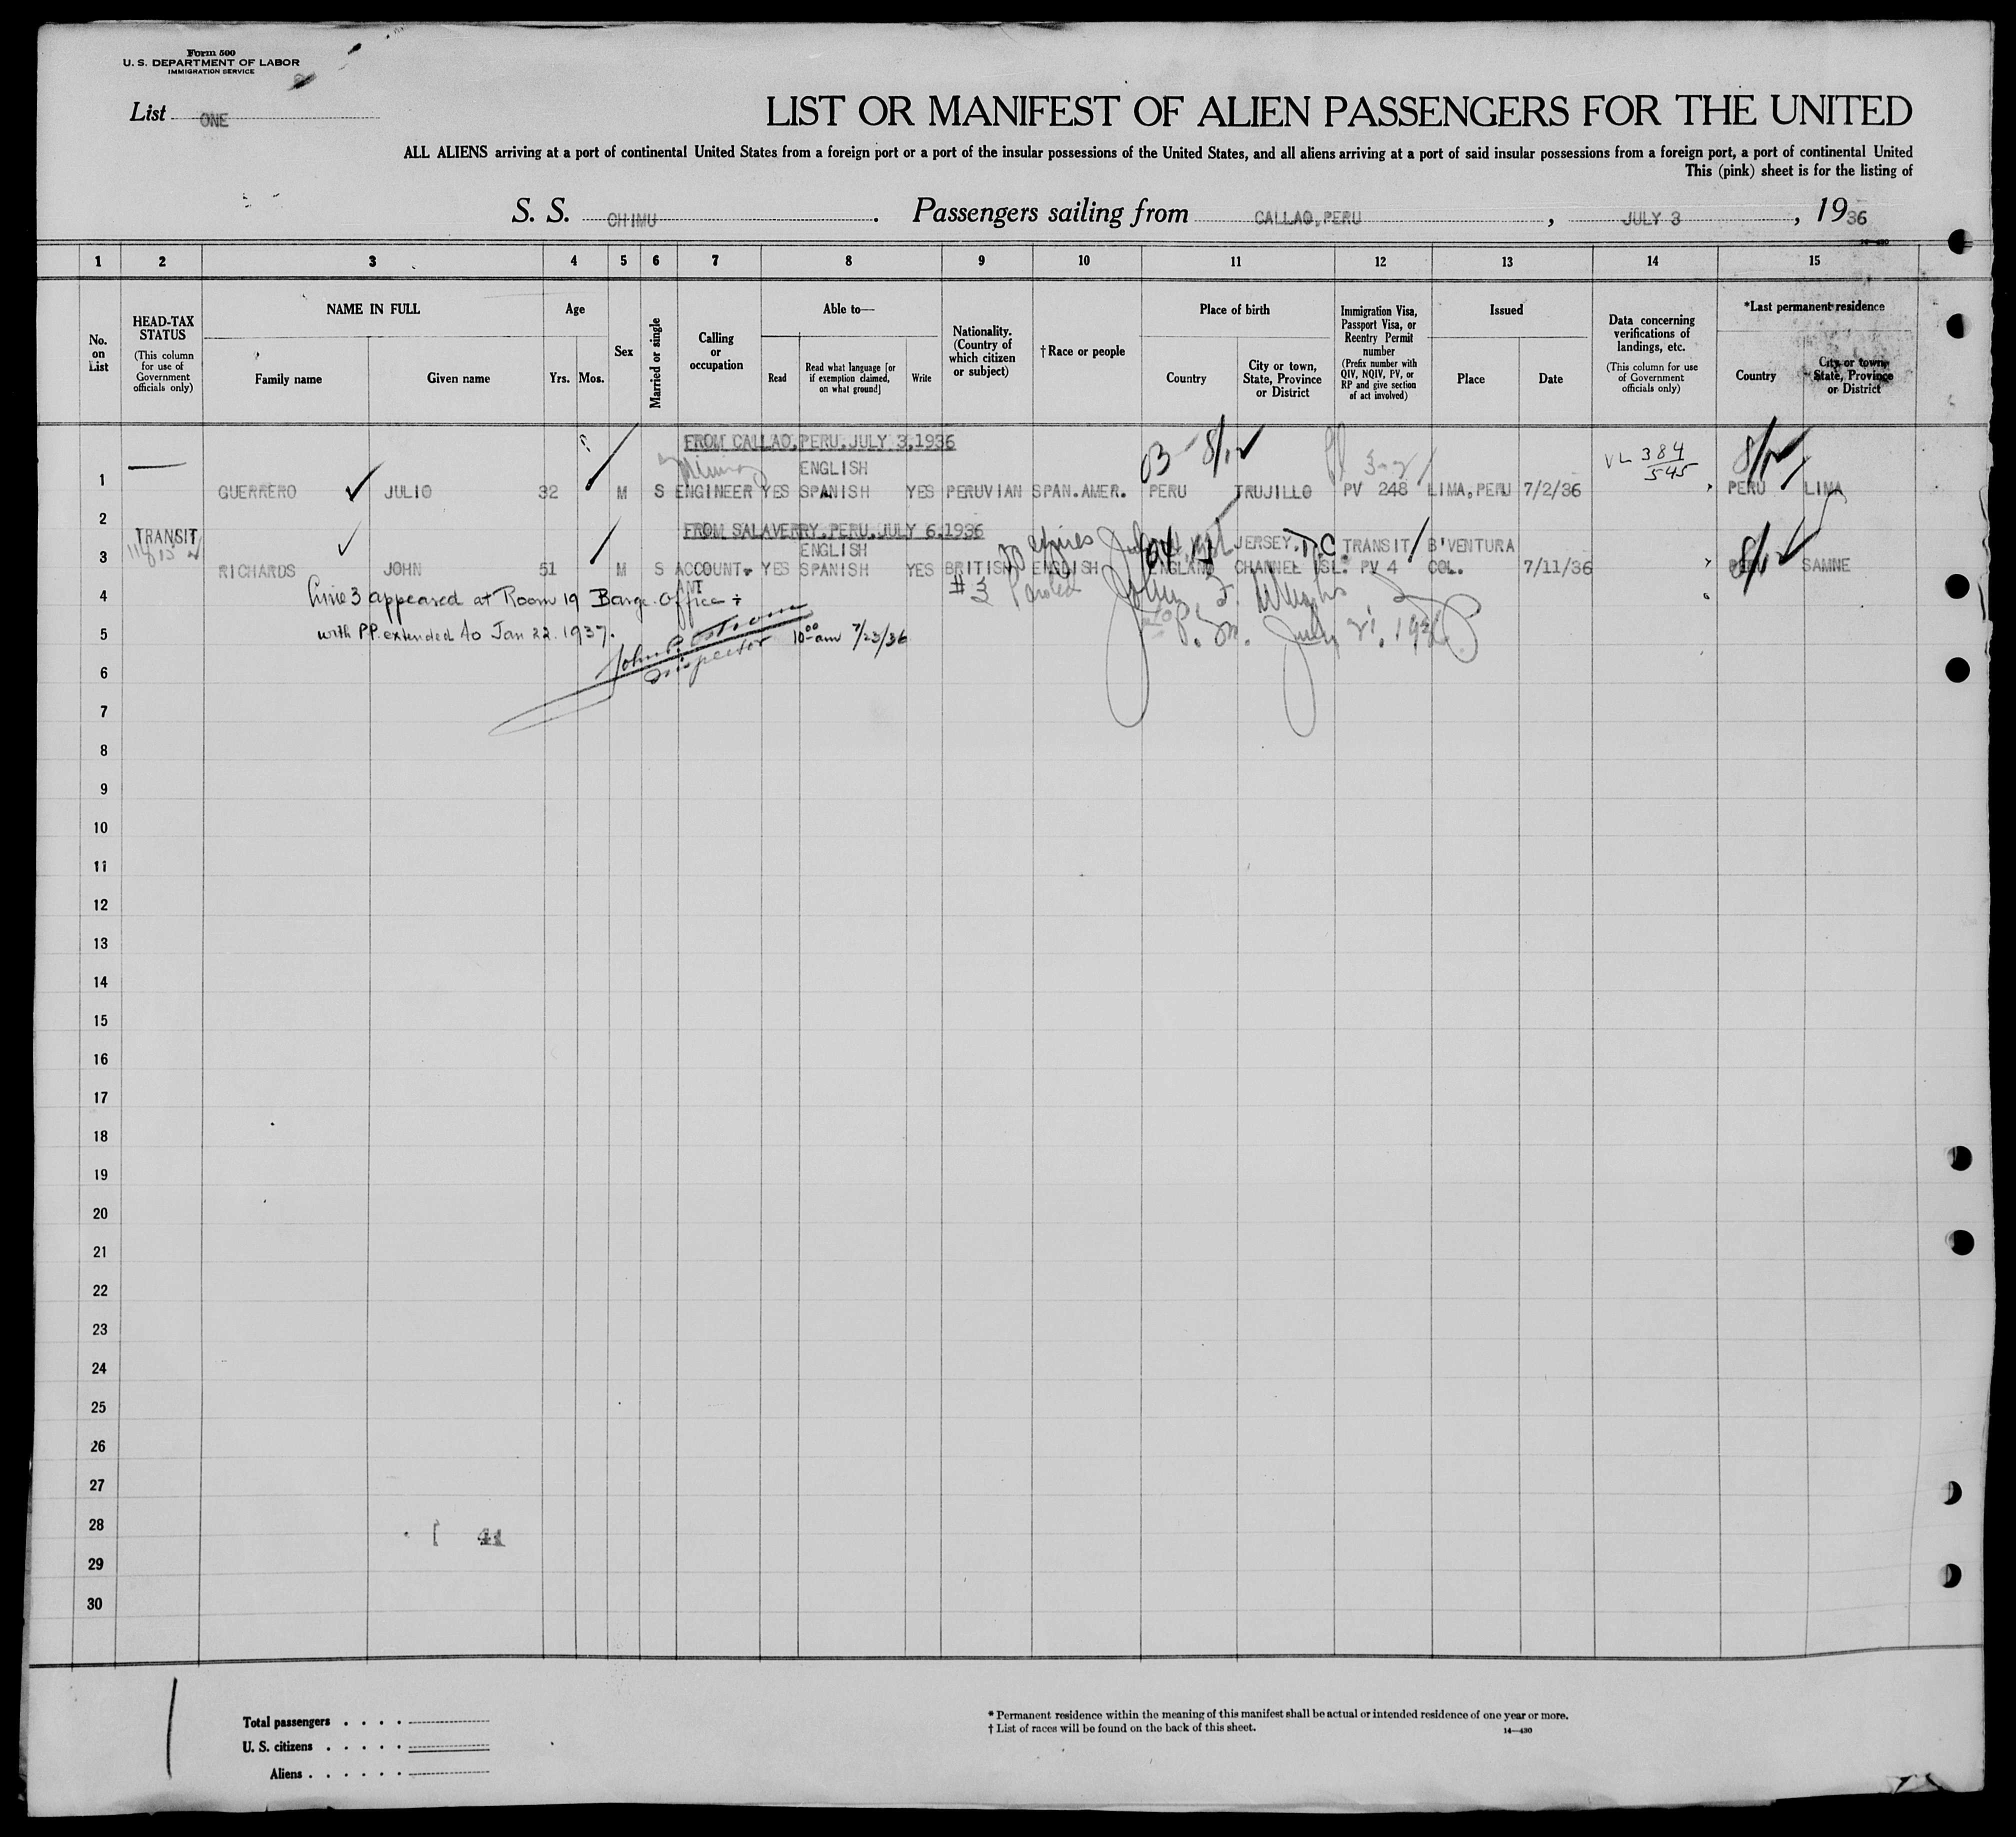 Form 500
U. S. DEPARTMENT OF LABOR
IMMIGRATION SERVICE
List ONE
LIST OR MANIFEST OF ALIEN PASSENGERS FOR THE UNITED
ALL ALIENS arriving at a port of continental United States from a foreign port or a port of the insular possessions of the United States, and all aliens arriving at a port of said insular possessions from a foreign port, a port of continental United
This (pink) sheet is for the listing of
S. S. CHIMU . Passengers sailing from CALLAO, PERU , JULY 3 , 1936
14—430
1 2 3 4 5 6 7 8 9 10 11 12 13 14 15
No. on List
HEAD-TAX STATUS
(This column for use of Government officials only)
NAME IN FULL
Family name
Given name
Age
Yrs. Mos.
Sex
Married or single
Calling or occupation
Able to—
Read
Read what language [or if exemption claimed, on what ground]
Write
Nationality. (Country of which citizen or subject)
† Race or people
Place of birth
Country
City or town, State, Province or District
Immigration Visa, Passport Visa, or Reentry Permit number
(Prefix number with QIV, NQIV, PV, or RP and give section of act involved)
Issued
Place
Date
Data concerning verifications of landings, etc.
(This column for use of Government officials only)
*Last permanent residence
Country
City or town, State, Province or District
FROM CALLAO, PERU. JULY 3, 1936
03 8/12
VL 384
545
8/12
Mining ENGLISH
1 GUERRERO JULIO 32 M S ENGINEER YES SPANISH YES PERUVIAN SPAN.AMER. PERU TRUJILLO PV 248 LIMA, PERU 7/2/36 PERU LIMA
2
FROM SALAVERRY. PERU. JULY 6, 1936
TRANSIT ENGLISH JERSEY. TRANSIT B'VENTURA
3 RICHARDS JOHN 51 M S ACCOUNT- YES SPANISH YES BRITISH ENGLISH ENGLAND CHANNEL ISL. PV 4 COL. 7/11/36 PERU SAMNE
ANT
4 Line 3 appeared at Room 19 Barge Office
# 3 Paroled
5 with P.P. extended to Jan 22. 1937.
Inspector 10 00 am 7/23/36
July 21, 1936
6
7
8
9
10
11
12
13
14
15
16
17
18
19
20
21
22
23
24
25
26
27
28
41
29
30
Total passengers . . . .
U. S. citizens . . . . .
Aliens . . . . . .
* Permanent residence within the meaning of this manifest shall be actual or intended residence of one year or more.
† List of races will be found on the back of this sheet.
14—430